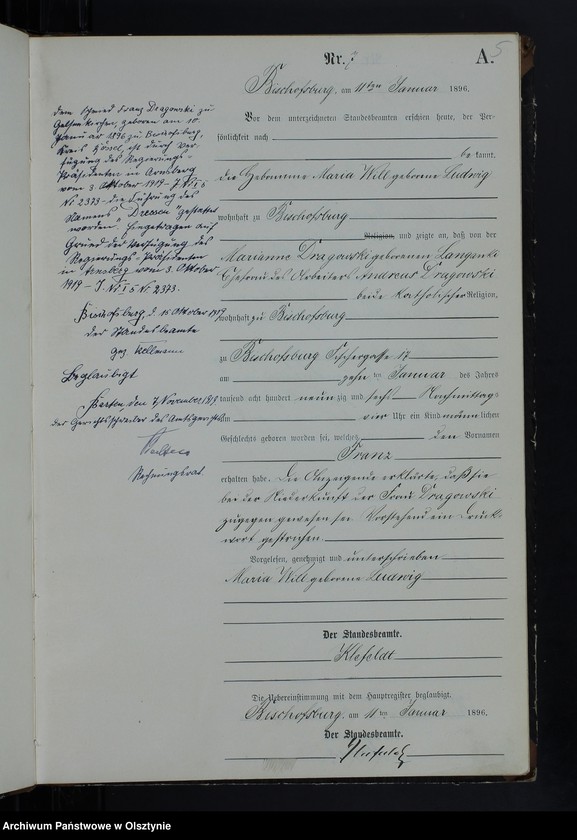 Nr. 7
A.
5
Bischofsburg, am 11ten Januar 1896.
Vor dem unterzeichneten Standesbeamten erschien heute, der Per-
sönlichkeit nach
be kannt,
die Hebamme Maria Will geborene Ludwig
wohnhaft zu Bischofsburg
Religion, und zeigte an, daß von der
Marianne Dragowski geborenen
Ehefrau des Arbeiters Andreas Dragowski
beide katholischer Religion,
wohnhaft zu Bischofsburg
zu Bischofsburg Fischergasse 17
am zehn ten Januar des Jahres
tausend acht hundert neunzig und sechs Nachmittags
um vier Uhr ein Kind männlichen
Geschlechts geboren worden sei, welches den Vornamen
Franz
erhalten habe. Die Anzeigende erklärte, daß sie
bei der Niederkunft der Frau Dragowski
zugegen gewesen sei. Vorstehend ein Druck-
wort gestrichen.
Vorgelesen, genehmigt und unterschrieben
Maria Will geborene Ludwig
Der Standesbeamte.
Klefeldt
Die Uebereinstimmung mit dem Hauptregister beglaubigt.
Bischofsburg, am 11ten Januar 1896.
Der Standesbeamte.
Klefeldt
Dem Schmied Franz Dragowski zu
Gelsenkirchen, geboren am 10.
Januar 1896 zu Bischofsburg,
Kreis Rössel, ist durch Ver-
fügung des Regierungs-
Präsidenten in Arnsberg
vom 3. Oktober 1919 – J. N. I 5
Nr 2373 – die Führung des
Namens „Dressen“ gestattet
worden. Eingetragen auf
Grund der Verfügung des
Regierungs-Präsidenten
in Arnsberg vom 3. Oktober
1919 – J. N. I 5 Nr. 2373.
Bischofsburg, d. 15 Oktober 1919
Der Standesbeamte
gez.
Beglaubigt
Bartenstein, den 7. November 1919
der Gerichtsschreiber des Amtsgerichts
Rechnungsrat
Archiwum Państwowe w Olsztynie